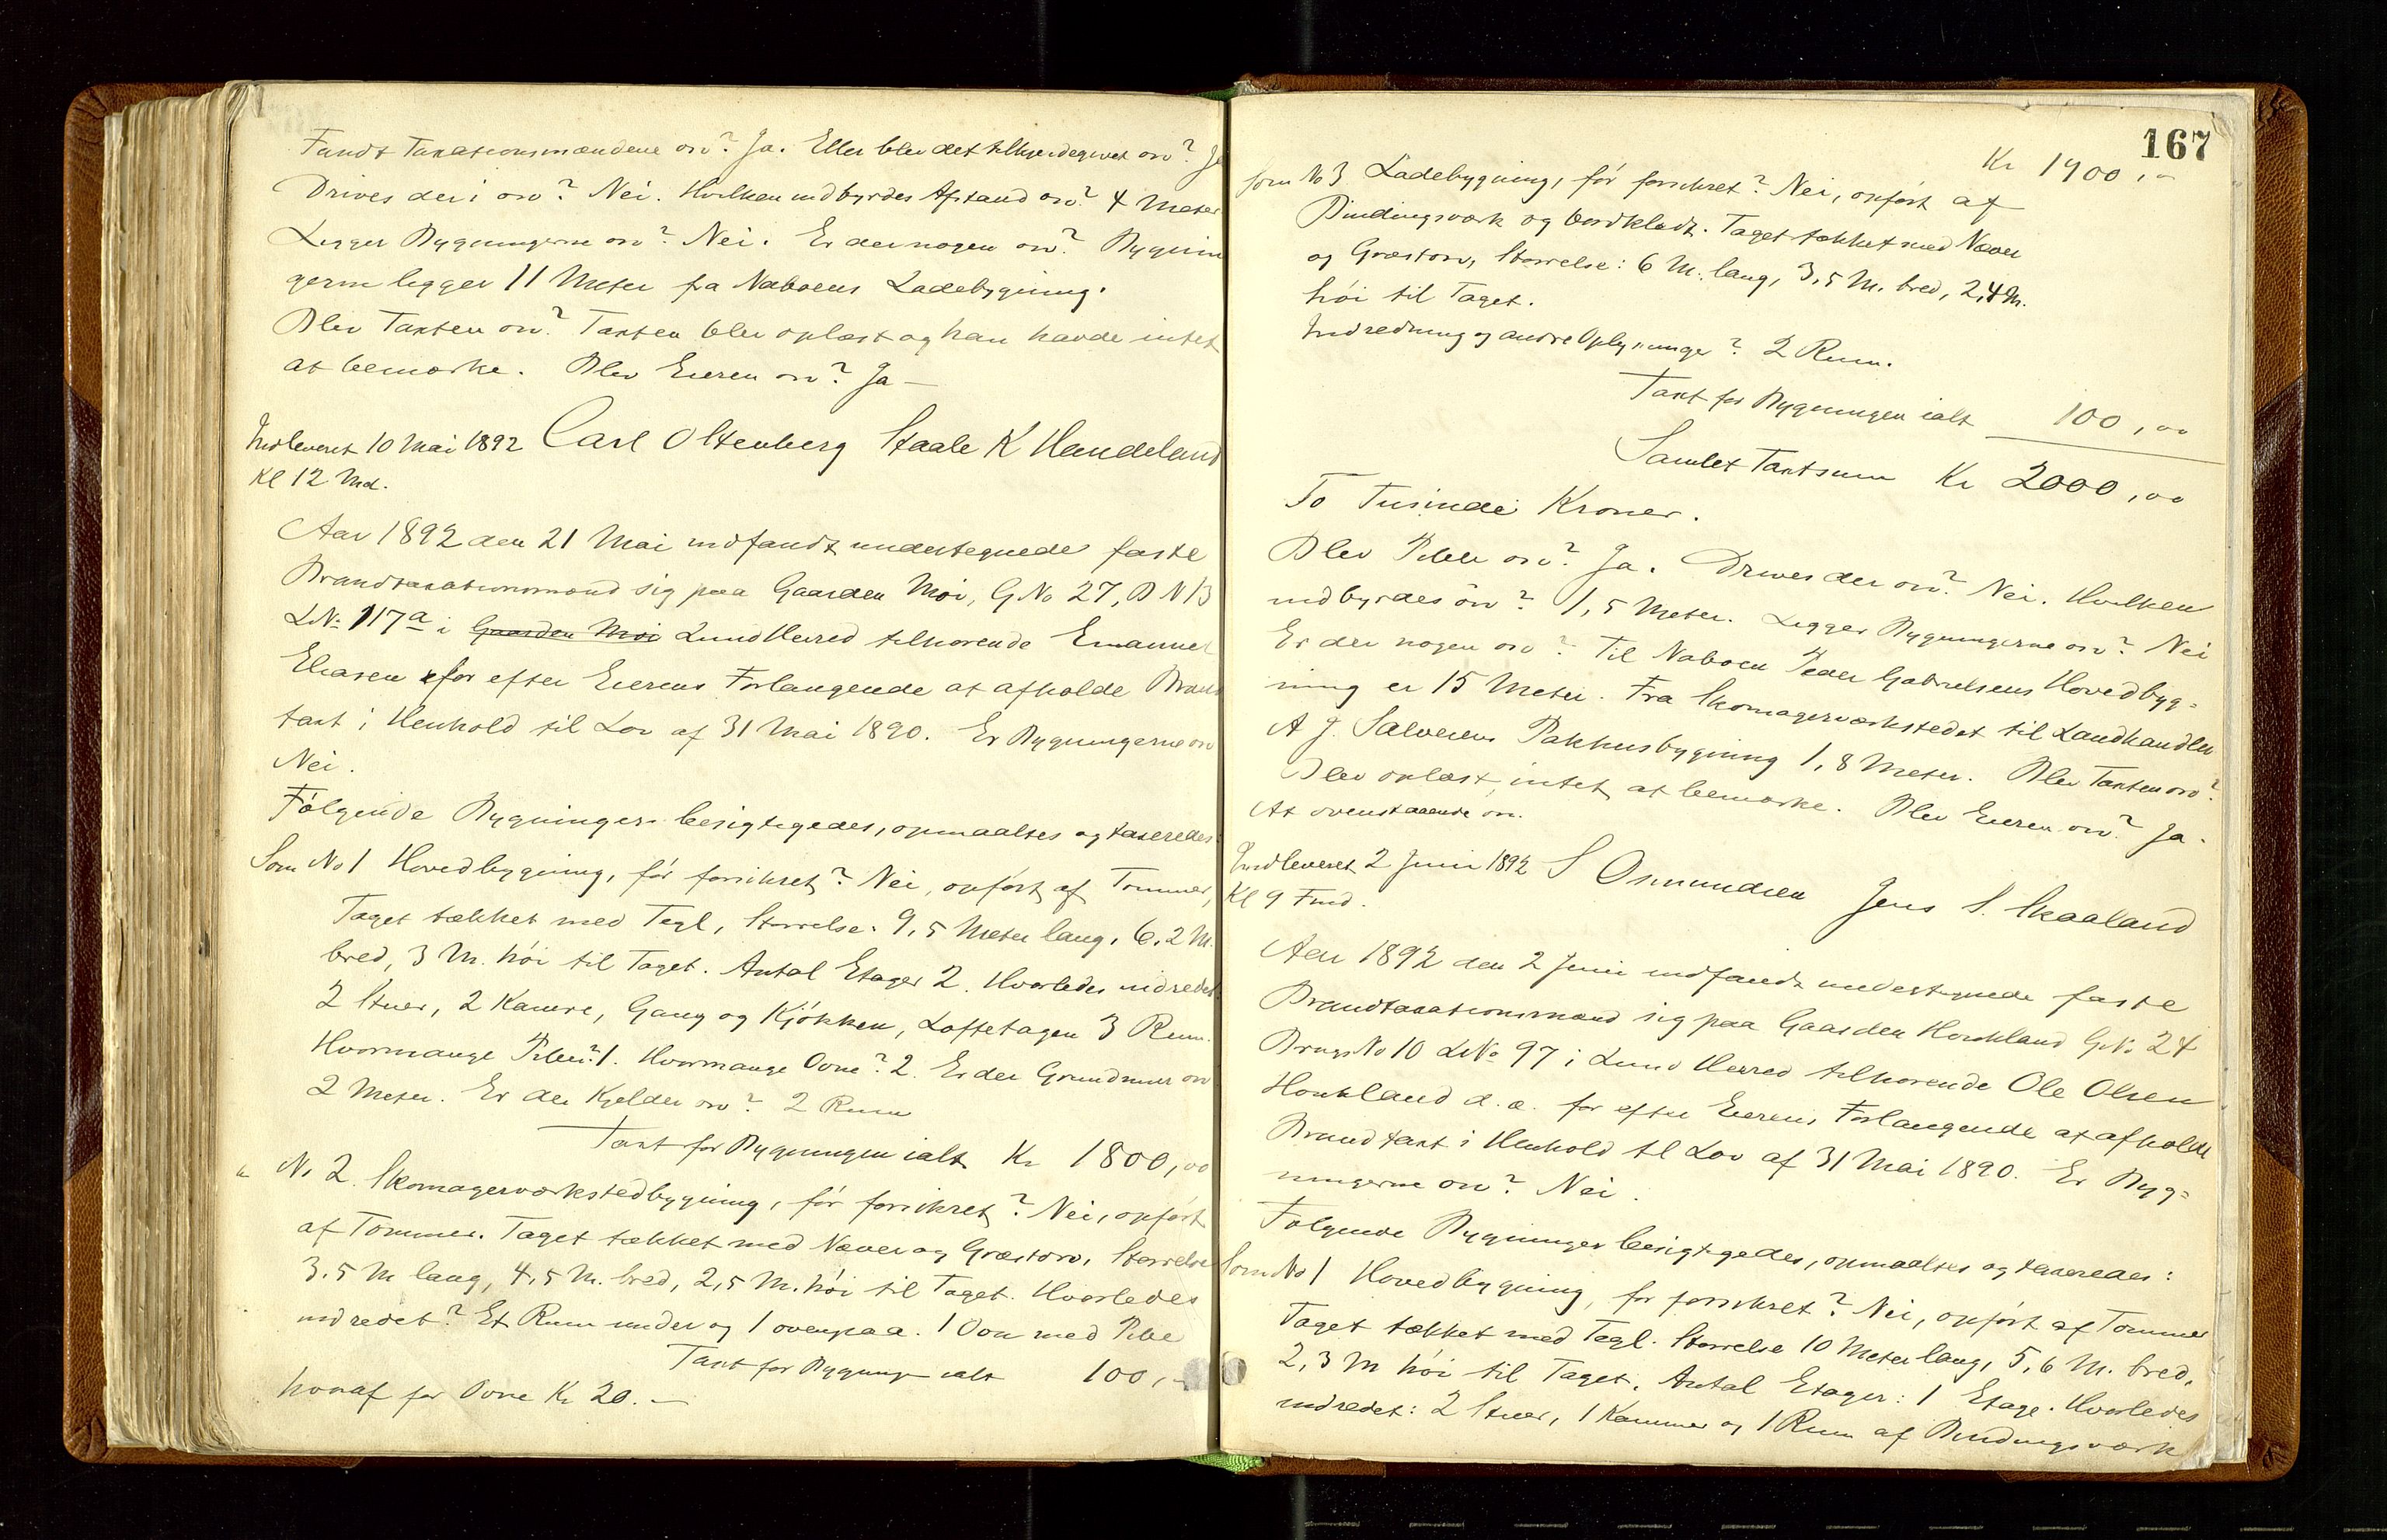 Fandt Taxationsmændene osv? Ja. Eller blev det tilkjendegivet osv? Ja
Drives der i osv? Nei. Hvilken indbyrdes Afstand osv? 4 Meter
Ligger Bygningerne osv? Nei. Er der nogen osv? Bygnin
gerne ligger 11 Meter fra Naboens Ladebygning.
Blev Taxten osv? Taxten blev oplæst og han havde intet
at bemærke. Blev Eieren osv? Ja —
Indleveret 10 Mai 1892 Carl Oltenberg Staale K Handeland
Kl 12 Md.
Aar 1892 den 21 Mai indfandt undertegnede faste
Brandtaxationsmænd sig paa Gaarden Moi, G No 27, B N 13
L No 117a i Gaarden Moi Lund Herred tilhørende Emanuel
Eliasen for efter Eierens Forlangende at afholde Brand
taxt i Henhold til Lov af 31 Mai 1890. Er Bygningerne osv
Nei.
Følgende Bygninger besigtigedes, opmaaltes og taxeredes:
Som No 1 Hovedbygning, før forsikret? Nei, opført af Tømmer,
Taget tækket med Tegl, Størrelse: 9,5 Meter lang, 6,2 M.
bred, 3 M. høi til Taget. Antal Etager 2. Hvorledes indredet
2 Stuer, 2 Kamre, Gang og Kjøkken, Loftetagen 3 Rum.
Hvormange Piber? 1. Hvormange Ovne? 2. Er der Grundmur osv
2 Meter. Er der Kjelder osv? 2 Rum
Taxt for Bygningen ialt Kr 1800,00
" No 2. Skomagerværkstedbygning, før forsikret? Nei, opført
af Tømmer. Taget tækket med Næver og Græstorv. Størrelse
3,5 M lang, 4,5 M. bred, 2,5 M. høi til Taget. Hvorledes
indredet? Et Rum under og 1 ovenpaa. 1 Ovn med Pibe
Taxt for Bygning ialt 100,-
hvoraf for Ovne Kr 20. —
167
Kr 1900,-
som No 3 Ladebygning, før forsikret? Nei, opført af
Bindingsværk og bordklædt. Taget tækket med Næver
og Græstorv, Størrelse: 6 M. lang, 3,5 M. bred, 2,4 M.
høi til Taget.
Indredning og andre Oplysninger? 2 Rum.
Taxt for Bygningen ialt 100,00
Samlet Taxtsum Kr 2000,00
To Tusinde Kroner.
Blev Piber osv? Ja. Drives der osv? Nei. Hvilken
indbyrdes osv? 1,5 Meter. Ligger Bygningerne osv? Nei
Er der nogen osv? Til Naboen Peder Gabrielsens Hovedbyg=
ning er 15 Meter. Fra Skomagerværkstedet til Landhandler
A J. Salvesens Pakhusbygning 1,8 Meter. Blev Taxten osv?
Blev oplæst, intet at bemærke. Blev Eieren osv? Ja.
At ovenstaaende osv.
Indleveret 2 Juni 1892 S Osmundsen Jens S. Skaaland
Kl 9 Fmd.
Aar 1892 den 2 Juni indfandt undertegnede faste
Brandtaxationsmænd sig paa Gaarden Hovkland G No 24
Brugs No 10 L No 97 i Lund Herred tilhørende Ole Olsen
Hovkland d. æ. for efter Eierens Forlangende at afholde
Brandtaxt i Henhold til Lov af 31 Mai 1890. Er Byg=
ningerne osv? Nei.
Følgende Bygninger besigtigedes, opmaaltes og taxeredes:
Som No 1 Hovedbygning, før forsikret? Nei, opført af Tømmer
Taget tækket med Tegl. Størrelse 10 Meter lang, 5,6 M. bred.
2,3 M høi til Taget. Antal Etager: 1 Etage. Hvorledes
indredet: 2 Stuer, 1 Kammer og 1 Rum af Bindingsværk